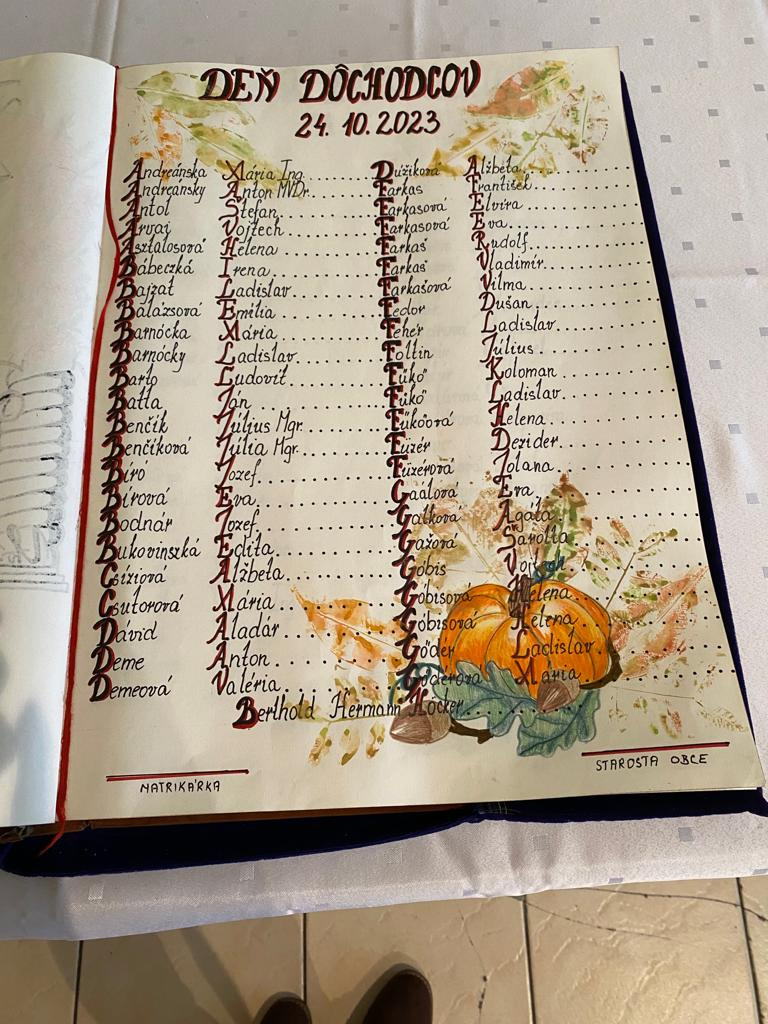 DEŇ DÔCHODCOV
24. 10. 2023
Andreánska Mária Ing.
Andreánsky Anton MVDr.
Antol Štefan
Árvai Vojtech
Asztalosová Helena
Bábeczká Irena
Bajzát Ladislav
Balázsová Emília
Barnócka Mária
Barnócky Ladislav
Barto Ľudovít
Batta Ján
Benčík Július Mgr.
Benčíková Júlia Mgr.
Bíró Jozef
Bírová Eva
Bodnár Jozef
Bukovinszká Edita
Cíziová Alžbeta
Csutorová Mária
Dávid Aladár
Deme Anton
Demeová Valéria
Dúžiková Alžbeta
Farkas František
Farkasová Elvíra
Farkasová Eva
Farkaš Rudolf
Farkaš Vladimír
Farkašová Vilma
Fedor Dušan
Fehér Ladislav
Foltin Július
Fükő Koloman
Fükő Ladislav
Füköová Helena
Füzér Dezider
Füzérová Jolana
Gaálová Eva
Gálková Agáta
Gažová Šarolta
Góbis Vojtech
Góbisová Helena
Góbisová Helena
Gőder Ladislav
Gőderová Mária
Berthold Hermann Höcker
MATRIKÁRKA
STAROSTA OBCE